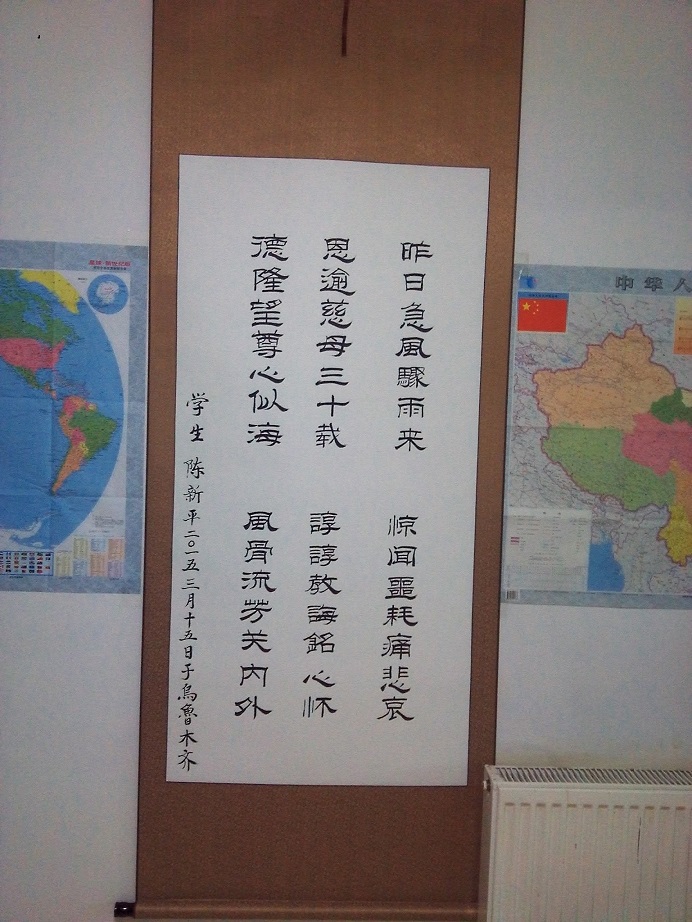 昨日急風驟雨来
惊闻噩耗痛悲哀
恩逾慈母三十载
諄諄教誨銘心怀
德隆望尊心似海
風骨流芳关内外
学生 陈新平二〇一五三月十五日于烏魯木齐
中华人